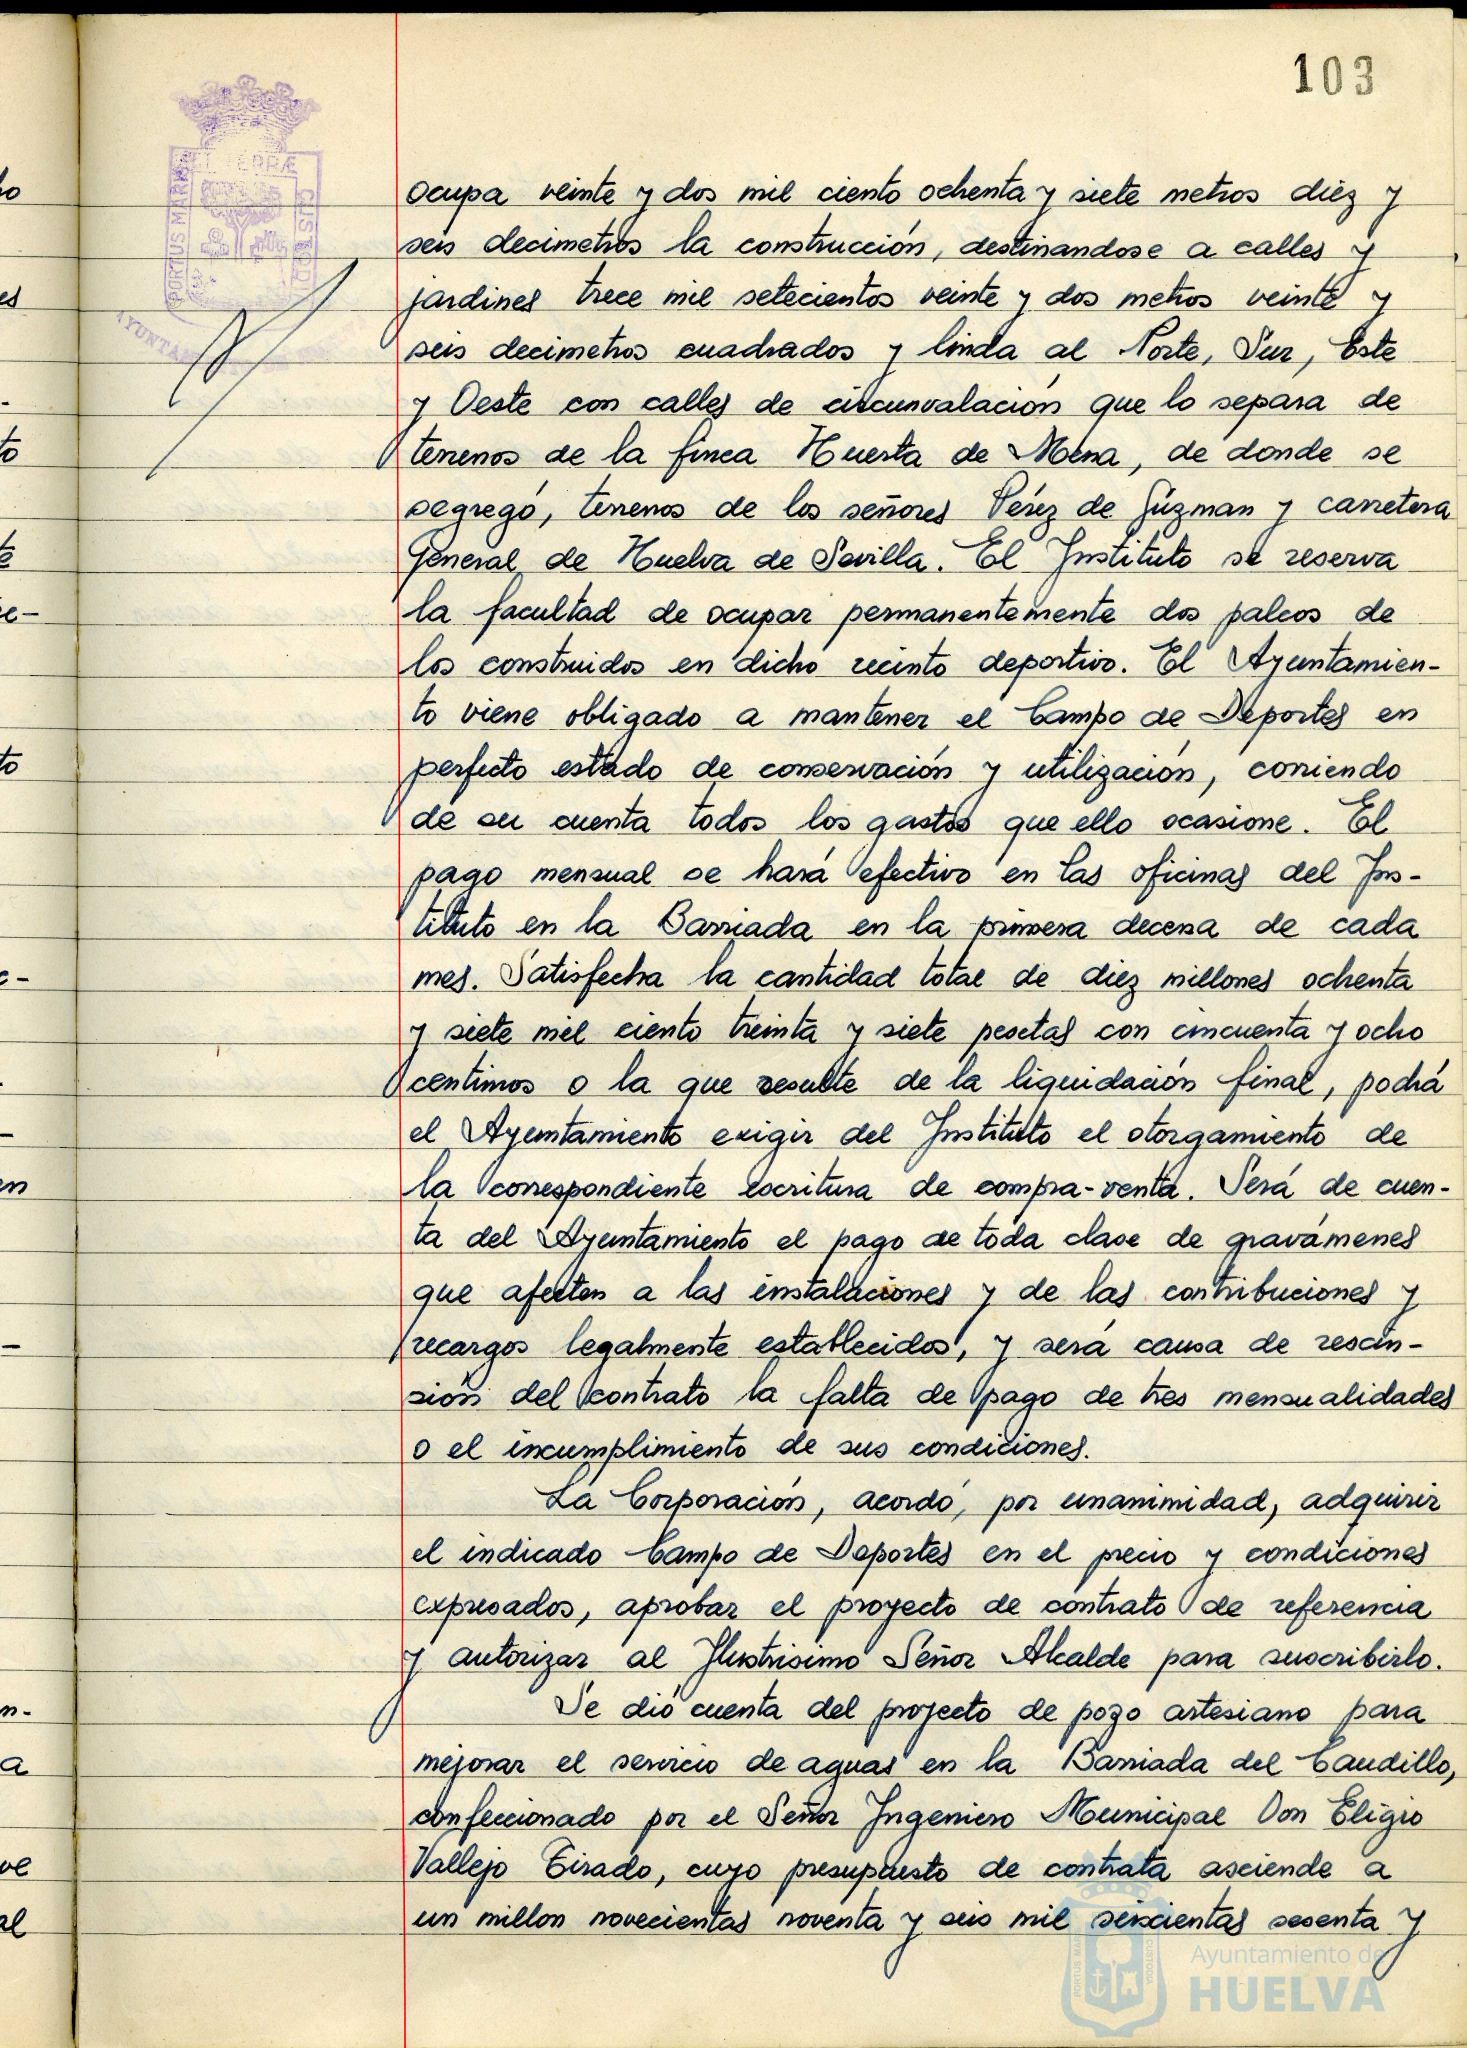 103
PORTUS MARIS ET TERRÆ CUSTODI
AYUNTAM
ocupa veinte y dos mil ciento ochenta y siete metros diéz y
seis decimetros la construcción, destinandose a calles y
jardines trece mil setecientos veinte y dos metros veinte y
seis decimetros cuadrados y linda al Norte, Sur, Este
y Oeste con calles de circunvalación que lo separa de
terrenos de la finca Huerta de Mena, de donde se
segregó, terrenos de los señores Pérez de Gúzman y carretera
general de Huelva de Sevilla. El Instituto se reserva
la facultad de ocupar permanentemente dos palcos de
los construidos en dicho recinto deportivo. El Ayuntamien-
to viene obligado a mantener el Campo de Deportes en
perfecto estado de conservación y utilización, corriendo
de su cuenta todos los gastos que ello ocasione. El
pago mensual se hará efectivo en las oficinas del Ins-
tituto en la Barriada en la primera decena de cada
mes. Satisfecha la cantidad total de diez millones ochenta
y siete mil ciento treinta y siete pesetas con cincuenta y ocho
centimos o la que resulte de la liquidación final, podrá
el Ayuntamiento exigir del Instituto el otorgamiento de
la correspondiente escritura de compra-venta. Será de cuen-
ta del Ayuntamiento el pago de toda clase de gravámenes
que afecten a las instalaciones y de las contribuciones y
recargos legalmente establecidos, y será causa de rescin-
sión del contrato la falta de pago de tres mensualidades
o el incumplimiento de sus condiciones.
La Corporación, acordó, por unanimidad, adquirir
el indicado Campo de Deportes en el precio y condiciones
expresados, aprobar el proyecto de contrato de referencia
y autorizar al Ilustrisimo Señor Alcalde para suscribirlo.
Se dió cuenta del proyecto de pozo artesiano para
mejorar el servicio de aguas en la Barriada del Caudillo,
confeccionado por el Señor Ingeniero Municipal Don Eligio
Vallejo Tirado, cuyo presupuesto de contrata asciende a
un millon novecientas noventa y seis mil seiscientas sesenta y
Ayuntamiento de
HUELVA